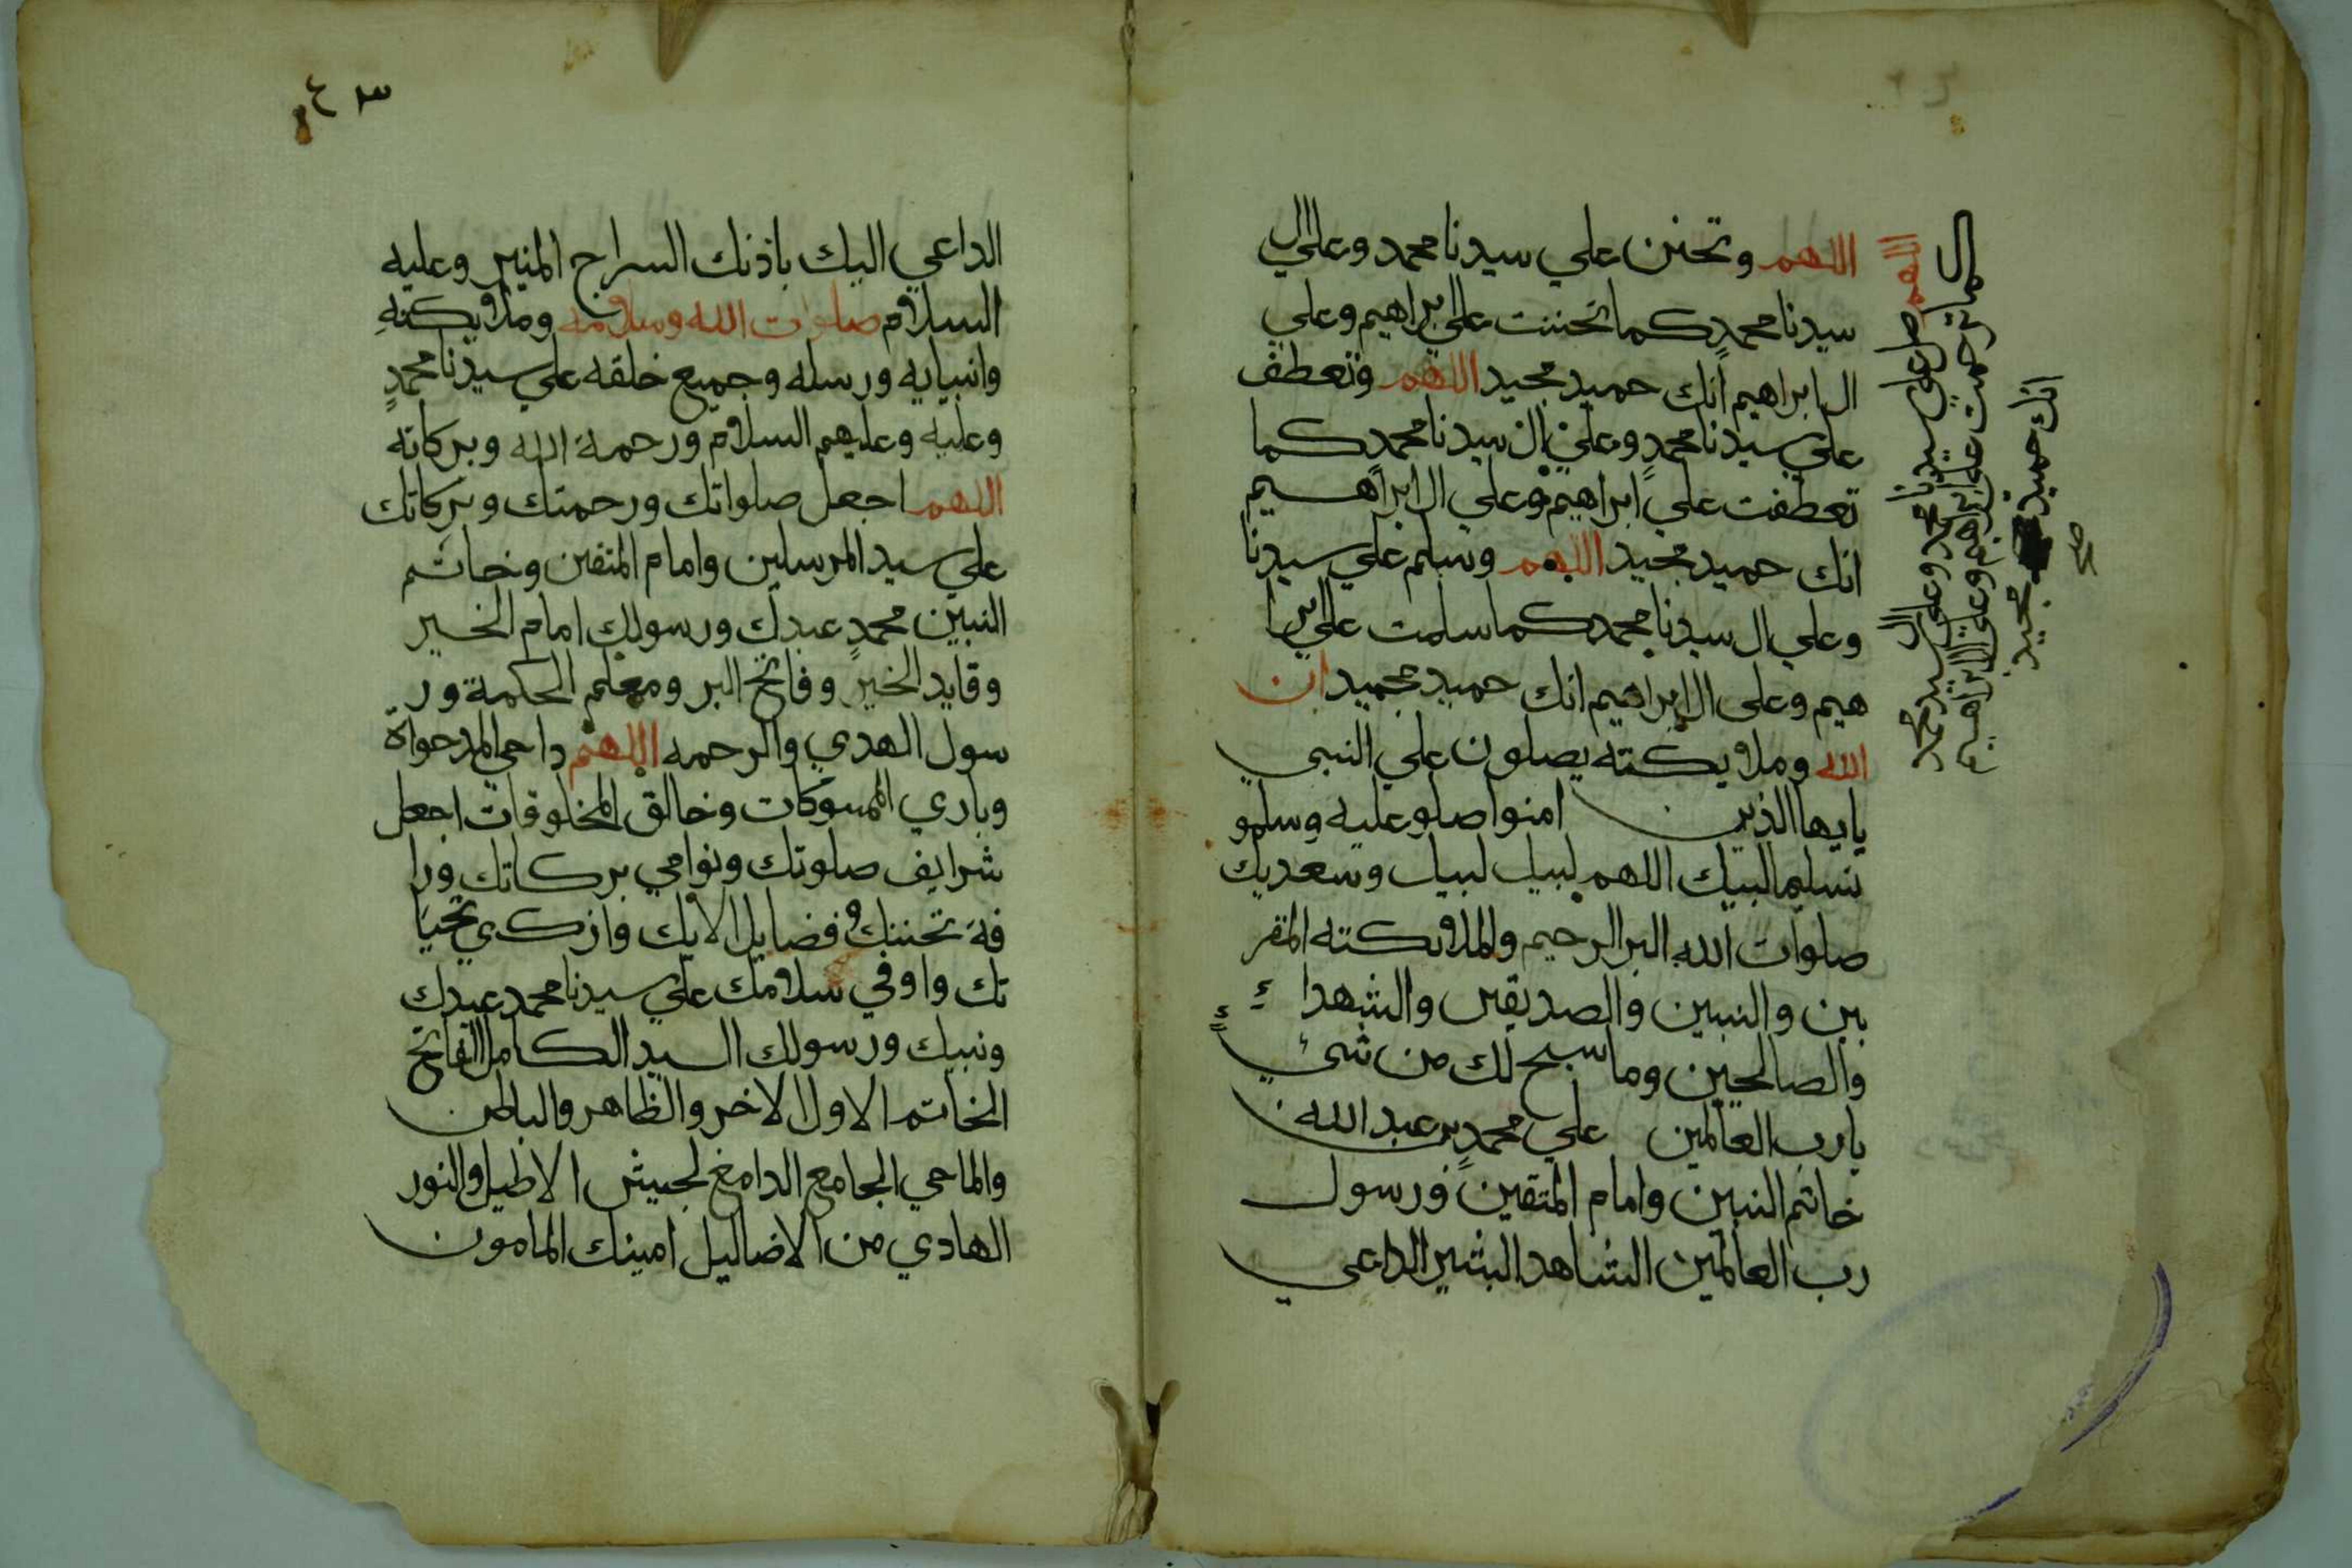 اللهم وتحنن علي سيدنا محمد وعلي ال
سيدنا محمد كما تحننت علي ابراهيم وعلي
ال ابراهيم انك حميد مجيد اللهم وتعطف
علي سيدنا محمد وعلي ال سيدنا محمد كما
تعطفت علي ابراهيم وعلي ال ابراهيم
انك حميد مجيد اللهم وسلم علي سيدنا
وعلي ال سيدنا محمد كما سلمت علي ابرا
هيم وعلى ال ابراهيم انك حميد مجيد ان
الله وملايكته يصلون علي النبي
يايها الذين امنوا صلو عليه وسلمو
تسليما لبيك اللهم لبيك وسعديك
صلوات الله البر الرحيم والملايكته المقر
بين والنبين والصديقين والشهداء
والصالحين وما سبح لك من شيء
يارب العالمين علي محمد بن عبد الله
خاتم النبين وامام المتقين ورسول
رب العالمين الشاهد البشير الداعي
اللهم صل علي سيدنا محمد وعلى ال سيدنا محمد
كما ترحمت علي ابراهيم وعلى ال ابراهيم
انك حميد مجيد
صح
٣٤
الداعي اليك باذنك السراج المنير وعليه
السلام صلوات الله وسلامه وملايكته
وانبيايه ورسله وجميع خلقه علي سيدنا محمد
وعليه وعليهم السلام ورحمة الله وبركاته
اللهم اجعل صلواتك ورحمتك وبركاتك
علي سيد المرسلين وامام المتقين وخاتم
النبين محمد عبدك ورسولك امام الخير
وقايد الخير وفاتح البر ومعلم الحكمة ور
سول الهدي والرحمه اللهم داحي المدحواة
وباري المسوكات وخالق المخلوقات اجعل
شرايف صلوتك ونوامي بركاتك ورا
فة تحننك وفضايل الايك وازكي تحيا
تك واوفي سلامك علي سيدنا محمد عبدك
ونبيك ورسولك السيد الكامل الفاتح
الخاتم الاول الاخر والظاهر والباطن
والماحي الجامع الدامغ لجيش الاطيل والنور
الهادي من الاضاليل امينك المامون